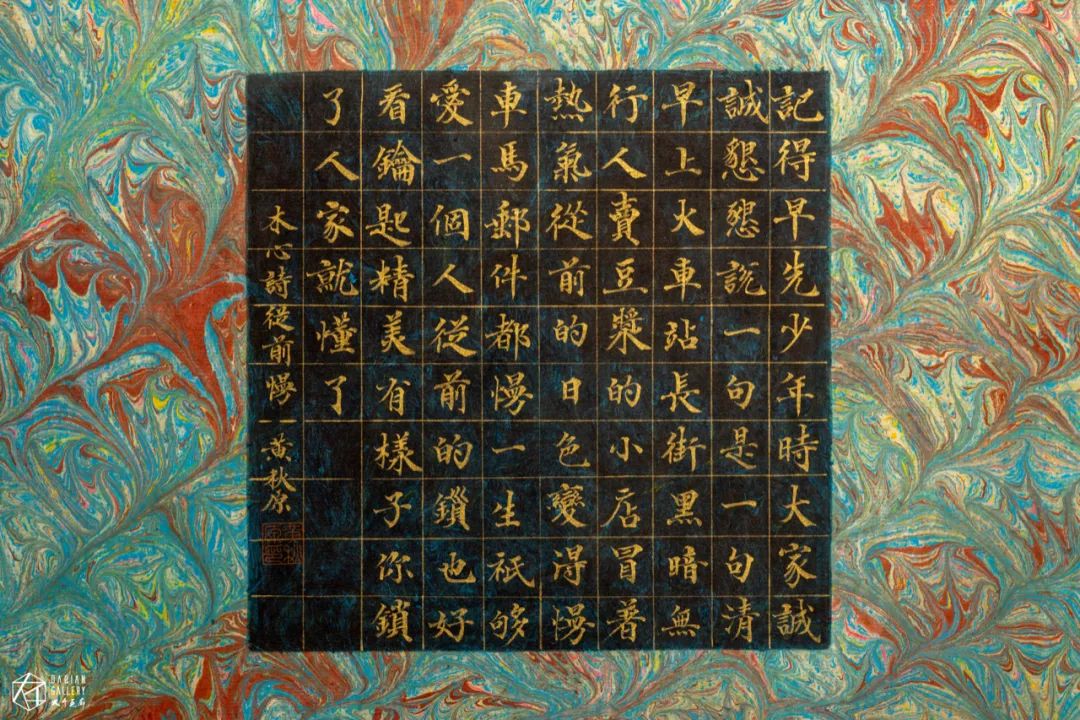 記得早先少年時大家誠
誠懇懇說一句是一句清
早上火車站長街黑暗無
行人賣豆漿的小店冒著
熱氣從前的日色變得慢
車馬郵件都慢一生祇够
愛一個人從前的鎖也好
看鑰匙精美有樣子你鎖
了人家就懂了
木心詩從前慢 黃秋原
DABIAN
GALLERY